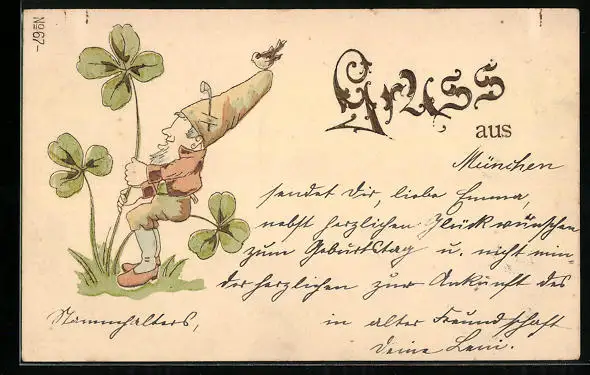 No 67-
Gruss
aus
München
sendet Dir, liebe Emma,
nebst herzlichen Glückwünschen
zum Geburtstag u. nicht min-
der herzlichen zur Ankunft des
Stammhalters,
in alter Freundschaft
Deine Leni.